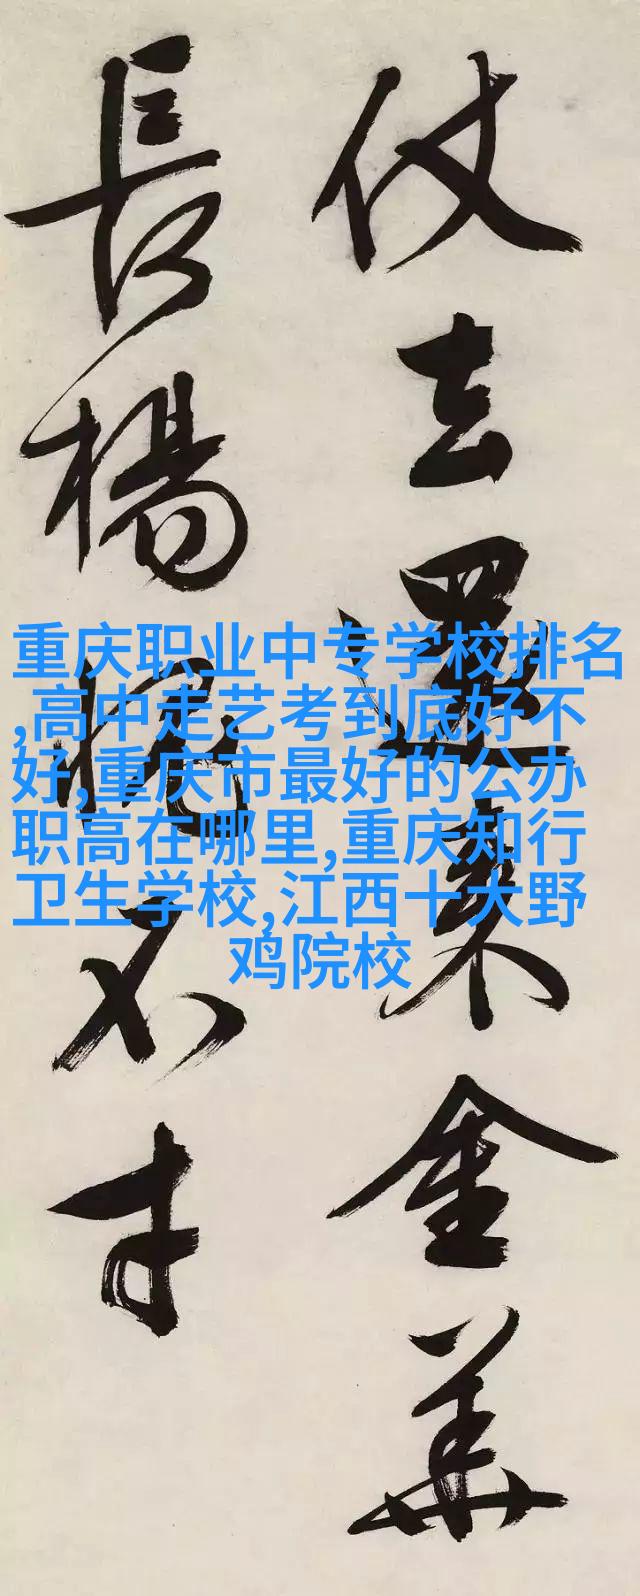 仗去還來金華
長楊愧不才
重庆职业中专学校排名
,高中走艺考到底好不
好,重庆市最好的公办
职高在哪里,重庆知行
卫生学校,江西十大野
鸡院校